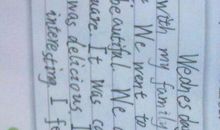 Wednesda
with my family
We went to
beautiful. We
uare It was co
was delicious I
interesting I fe